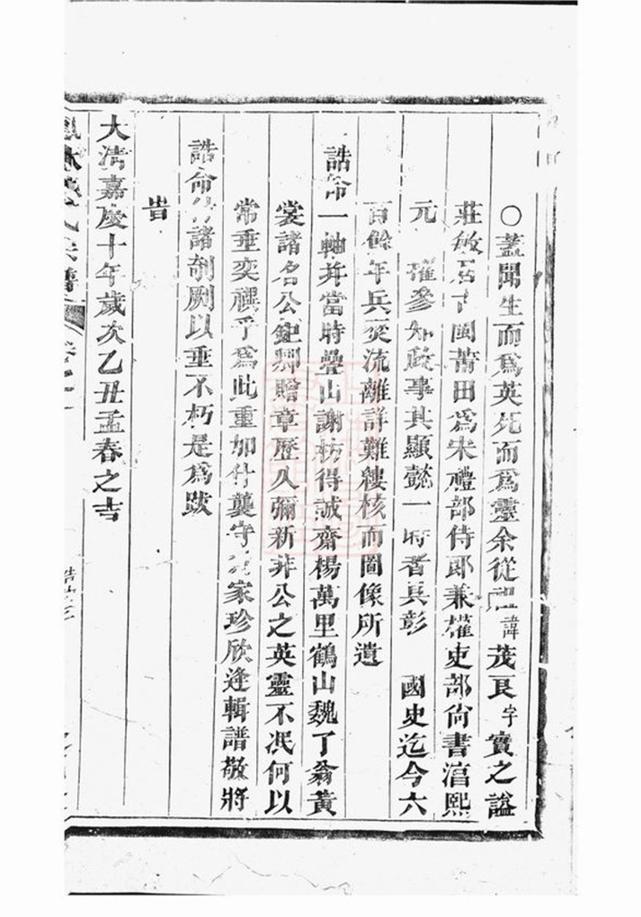 〇蓋聞生而爲英死而爲靈余從祖諱茂良字實之謚
莊敏居古閩莆田爲宋禮部侍郎兼權吏部尚書淳熙
元 權參知政事其顯懿一時者具彰 國史迄今六
百餘年兵燹流離詳難縷核而圖像所遺
誥命一軸并當時疊山謝枋得誠齋楊萬里鶴山魏了翁黃
裳諸名公鉅卿贈章歷久彌新非公之英靈不泯何以
常垂奕禩乎爲此重加什襲守 家珍欣逢輯譜敬將
誥命 諸剞劂以垂不朽是爲跋
旹
大清嘉慶十年歲次乙丑孟春之吉
氏宗譜